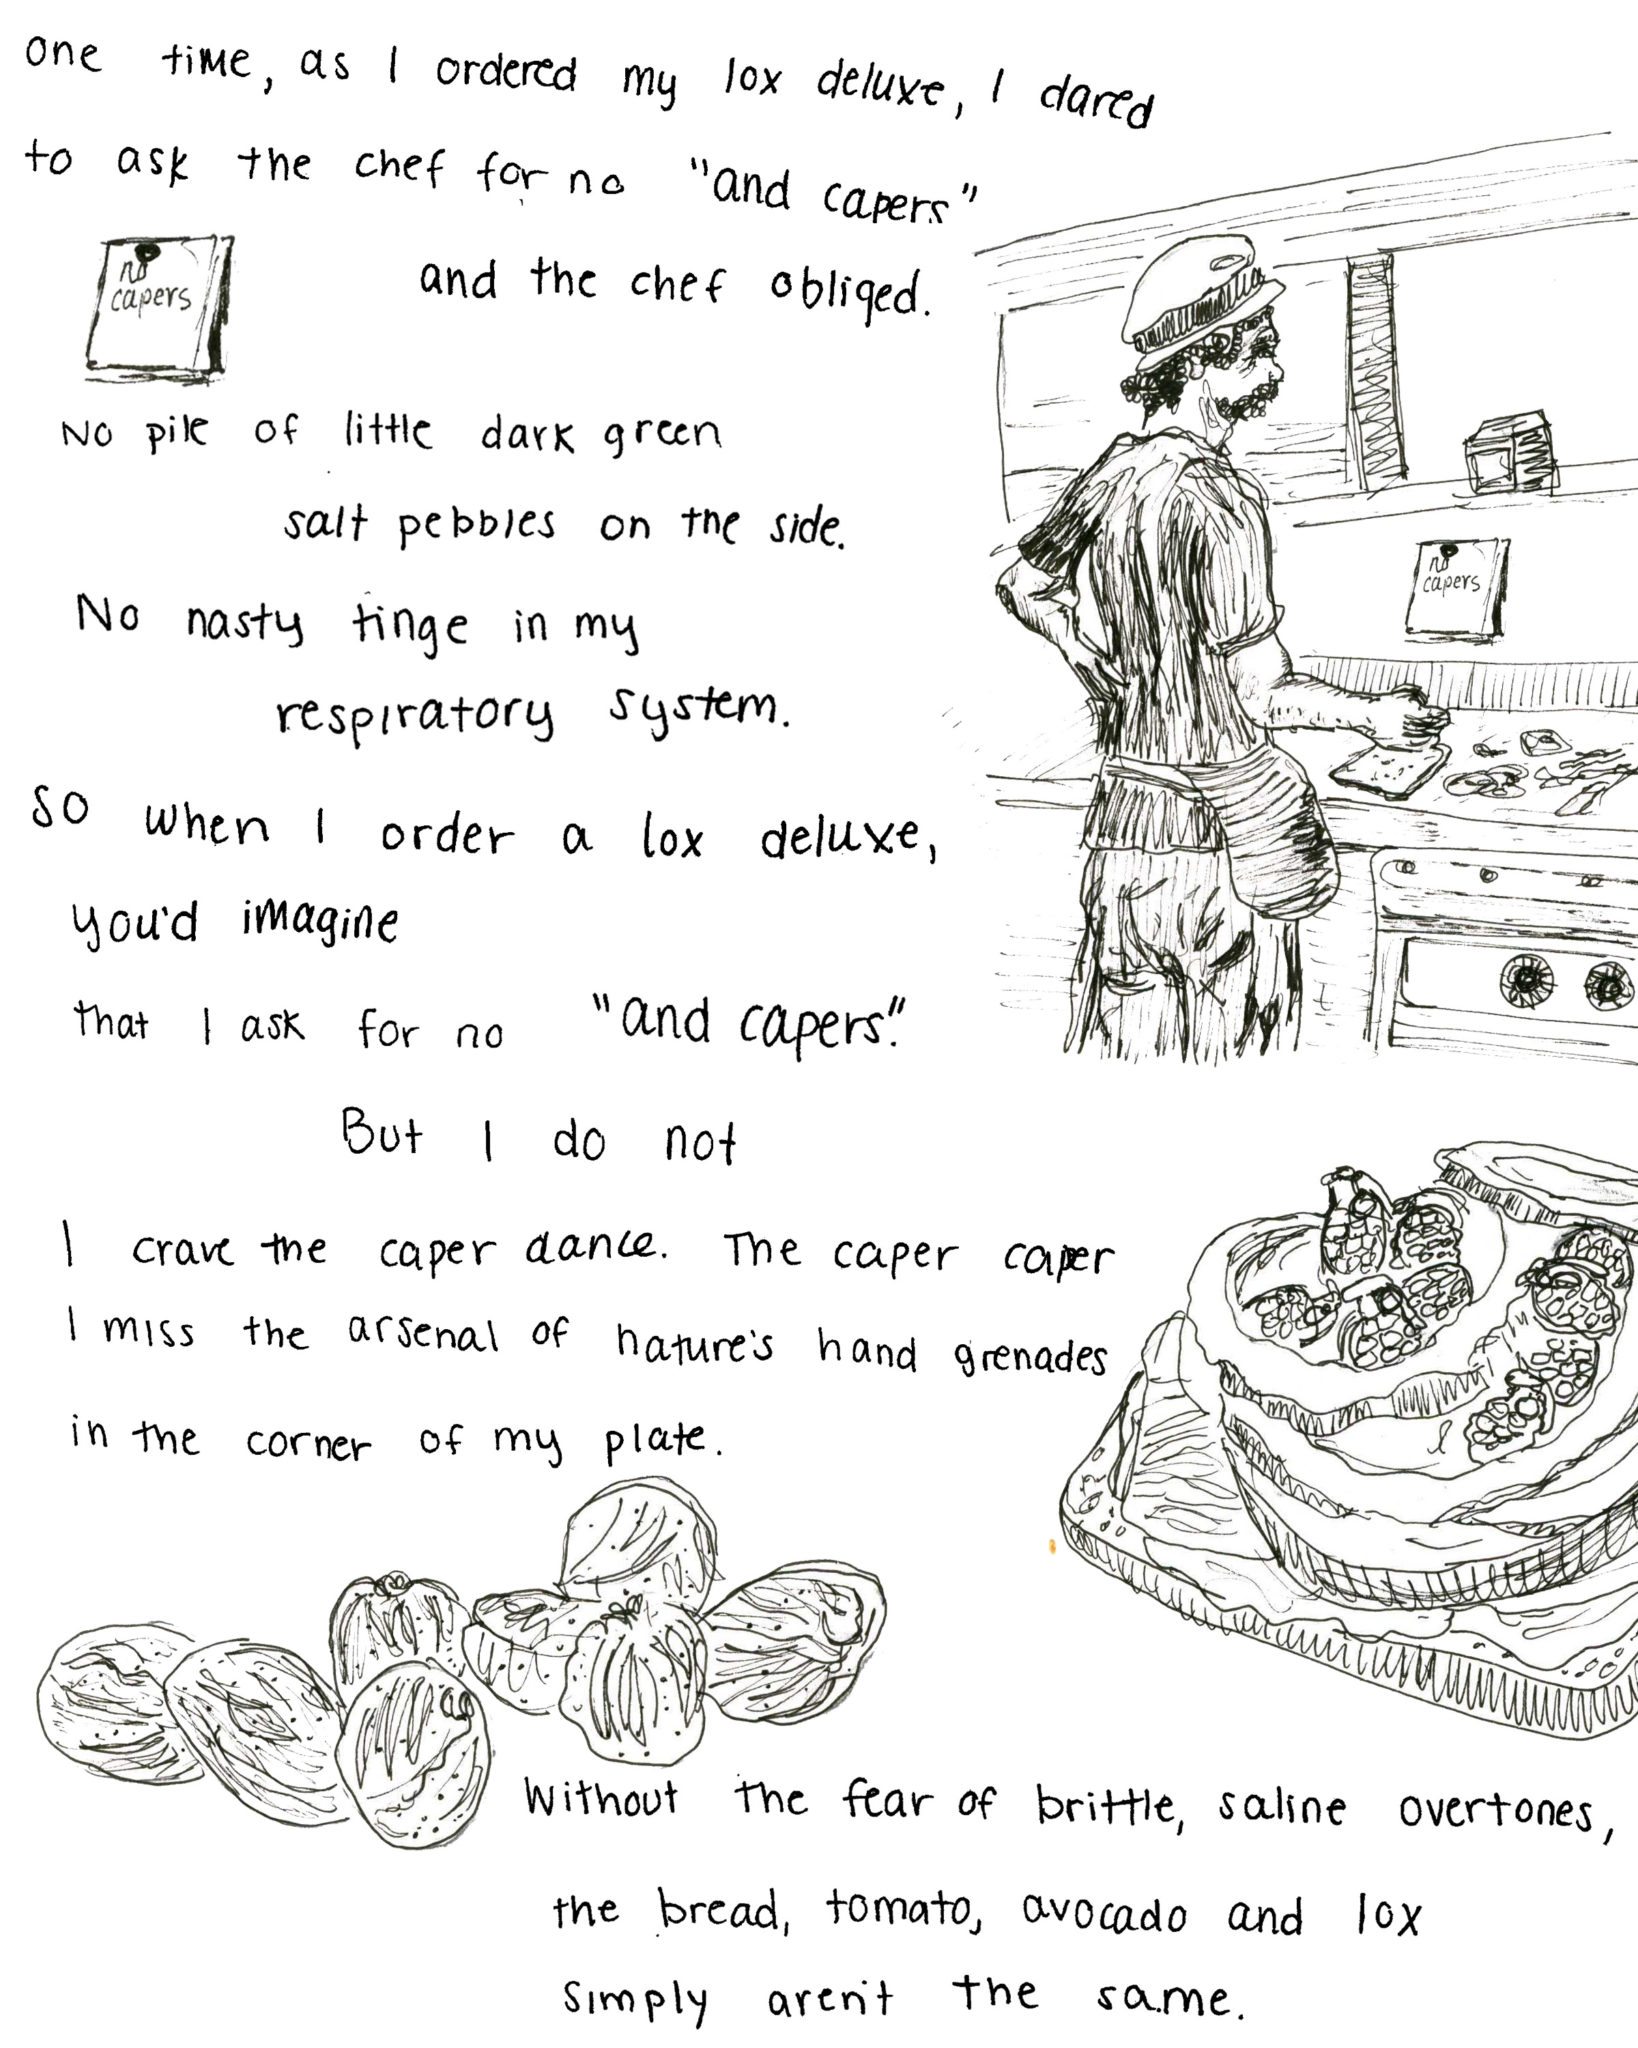 one time, as I ordered my lox deluxe, I dared
to ask the chef for no "and capers"
and the chef obliged.
no
capers
No pile of little dark green
salt pebbles on the side.
no
capers
No nasty tinge in my
respiratory system.
So when I order a lox deluxe,
you'd imagine
that I ask for no "and capers."
But I do not
I crave the caper dance. The caper caper
I miss the arsenal of nature's hand grenades
in the corner of my plate.
Without the fear of brittle, saline overtones,
the bread, tomato, avocado and lox
simply aren't the same.